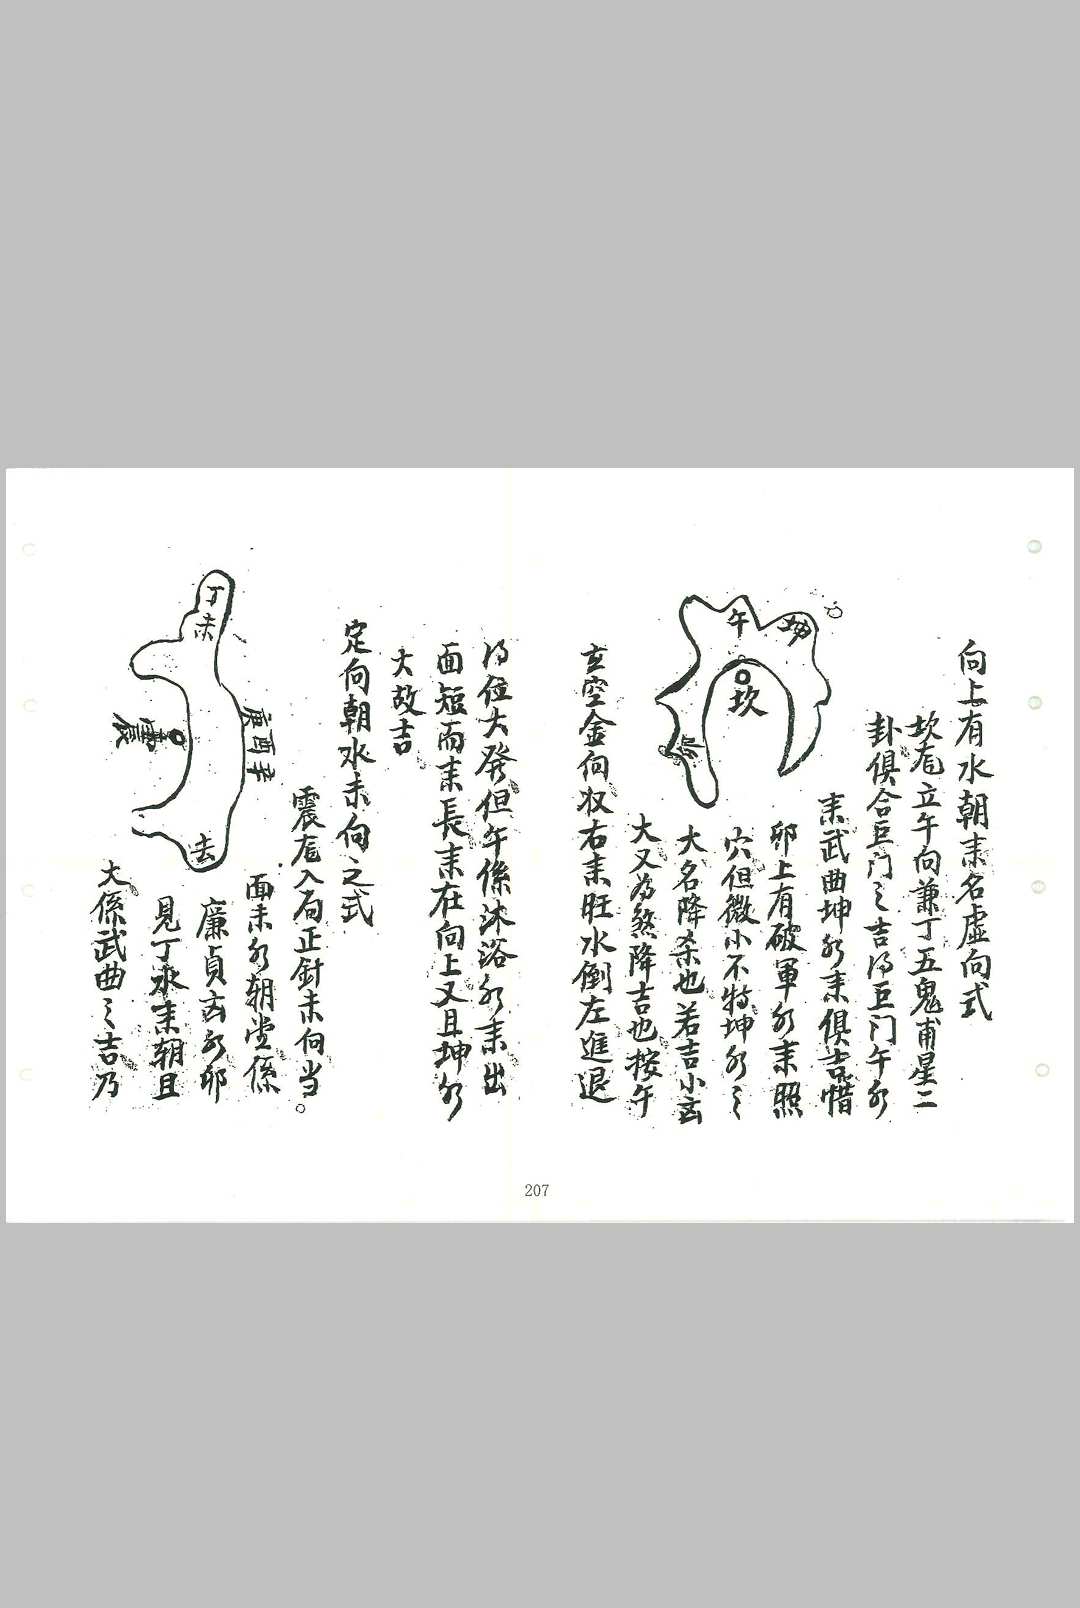 向上有水朝来名虛向式
坎龙立午向兼丁五鬼甫星二
卦俱合巨门之吉得巨门午水
来武曲坤水来俱吉惜
卯上有破軍水来照
穴但微小不特坤水之
大名降杀也若吉小玄
大又為煞降吉也按午
玄空金向收右来旺水倒左進退
午
坤
坎
卯
得位大發但午係沐浴水来出
面短而来長来在向上又且坤水
大故吉
定向朝水未向之式
震龙入局正針未向当
面未水朝堂係
廉貞玄水卯
見丁水来朝且
大係武曲之吉乃
丁未
庚酉辛
震
去
207